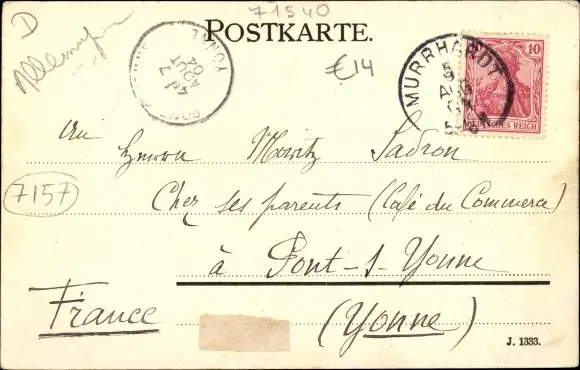 71540
D
Allemagne
POSTKARTE.
€14
YONNE
7
AOUT
04
MURRHARDT
5
AUG
04
10
DEUTSCHES REICH
An
Herrn Moritz Ladron
7157
Chez ses parents (Café du Commerce)
à Pont-s-Yonne
France
(Yonne)
J. 1333.